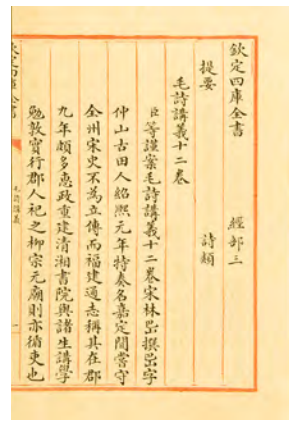 欽定四庫全書　經部三
提要　詩類
毛詩講義十二卷
臣等謹案毛詩講義十二卷宋林岊撰岊字
仲山古田人紹熙元年特奏名嘉定間嘗守
全州宋史不為立傳而福建通志稱其在郡
九年頗多惠政重建清湘書院與諸生講學
勉敦實行郡人祀之柳宗元廟則亦循吏也
欽定四庫全書
毛詩講義